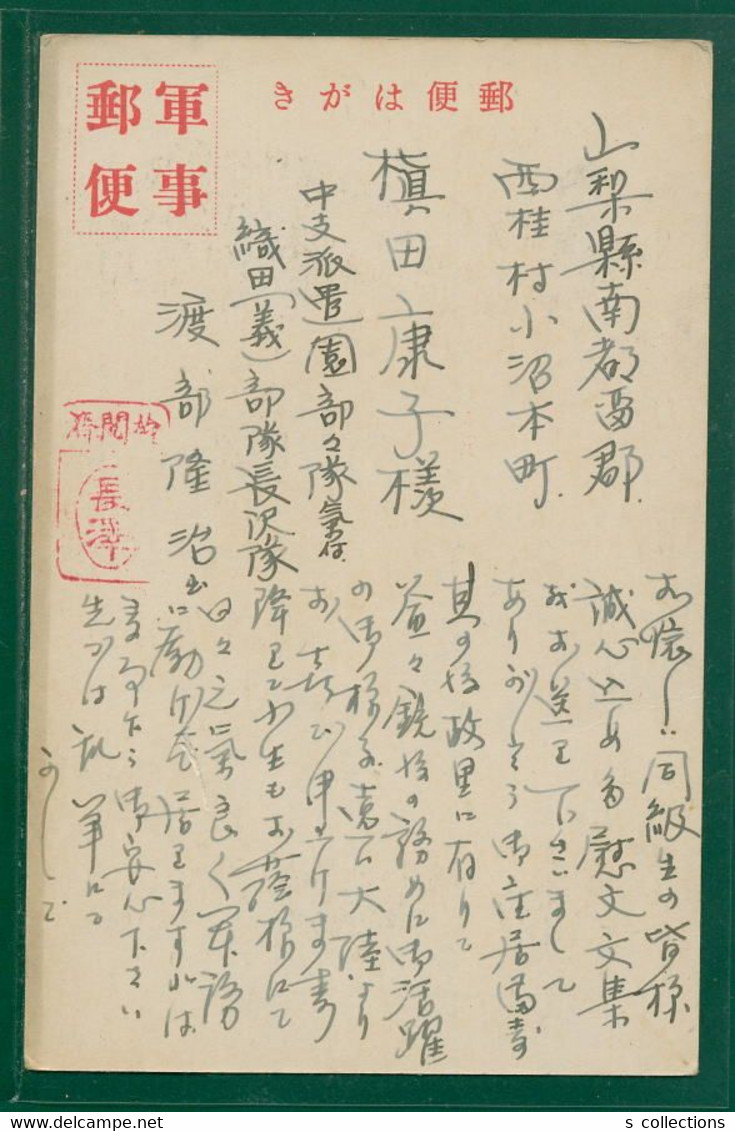 郵便はがき
軍事
郵便
山梨縣南都留郡
西桂村小沼本町
槇田康子様
中支派遣園部々隊氣付
織田(義)部隊長沢隊
渡部隆治
お懐しい同級生の皆様
誠心込めた慰文文集
お送り下さいまして
ありがとう
其の後故里に有りて
益々銃後の務めに御活躍
の御様子遠く大陸より
お喜び申上げます
降りて小生もお蔭様にて
日々元氣良く軍務
に励げんで居りますれば
御安心下さい
先づは乱筆にて
長澤
s collections